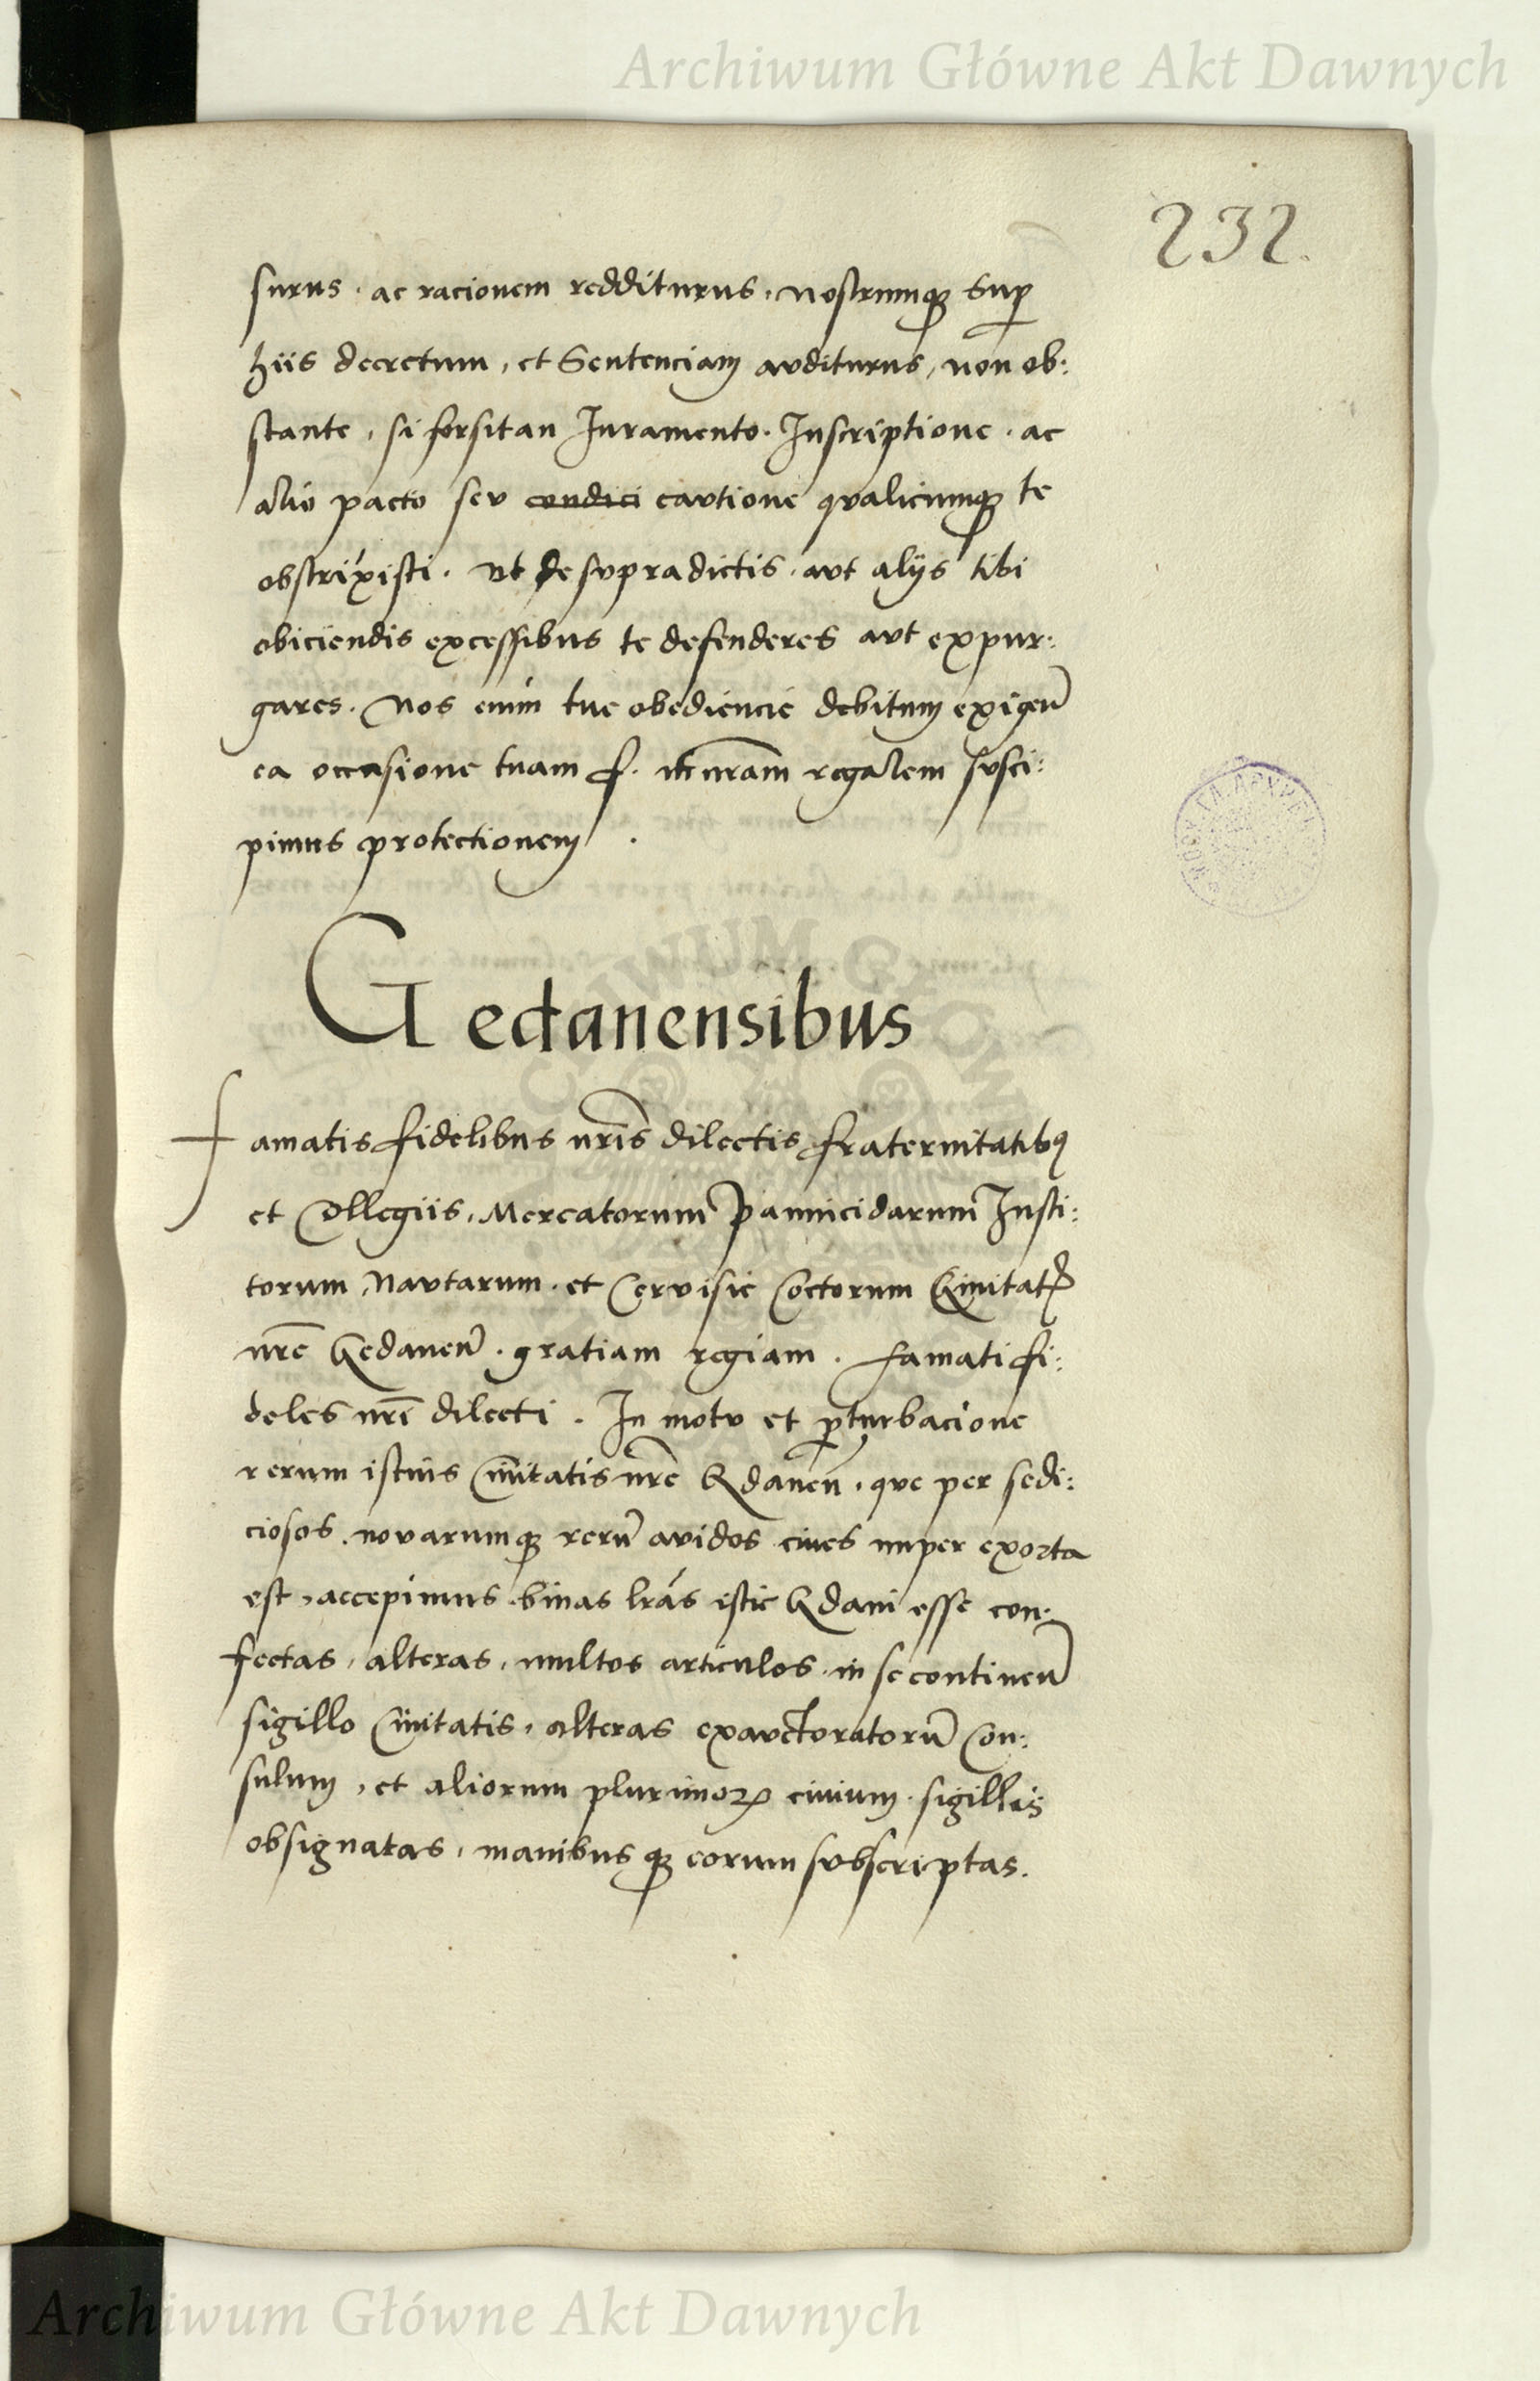 Archiwum Główne Akt Dawnych
232.
surus. ac racionem redditurus, nostrumqꝫ sup
hiis decretum, et Sentenciam auditurus, non ob:
stante, si forsitan Iuramento. Inscriptione. ac
alio pacto seu condici cautione qualicumqꝫ te
obstrixisti. ut de supradictis. aut alijs tibi
obiciendis excessibus te defenderes aut expur:
gares. Nos enim tue obediencie debitum exigen̄
ea occasione tuam f. in n̄ram regalem susci:
pimus protectionem.
Gedanensibus
Famatis fidelibus n̄ris dilectis fraternitatibꝰ
et Collegiis, Mercatorum Pannicidarum Insti:
torum, Nautarum. et Cervisie Coctorum Civitatꝭ
n̄re Gedanen̄. gratiam regiam. Famati fi:
deles n̄ri dilecti. In motu et ꝑturbacione
rerum istius Civitatis n̄re Gdanen̄. que per sedi:
ciosos. novarumqꝫ rerū avidos cives nuper exorta
est, accepimus binas lr̄as istic Gdani esse con:
fectas, alteras, multos articulos in se continen̄
sigillo Civitatis, alteras exauctoratorū Con:
sulum, et aliorum plurimoꝝ civium sigillis
obsignatas, manibus qꝫ eorum subscriptas.
Archiwum Główne Akt Dawnych